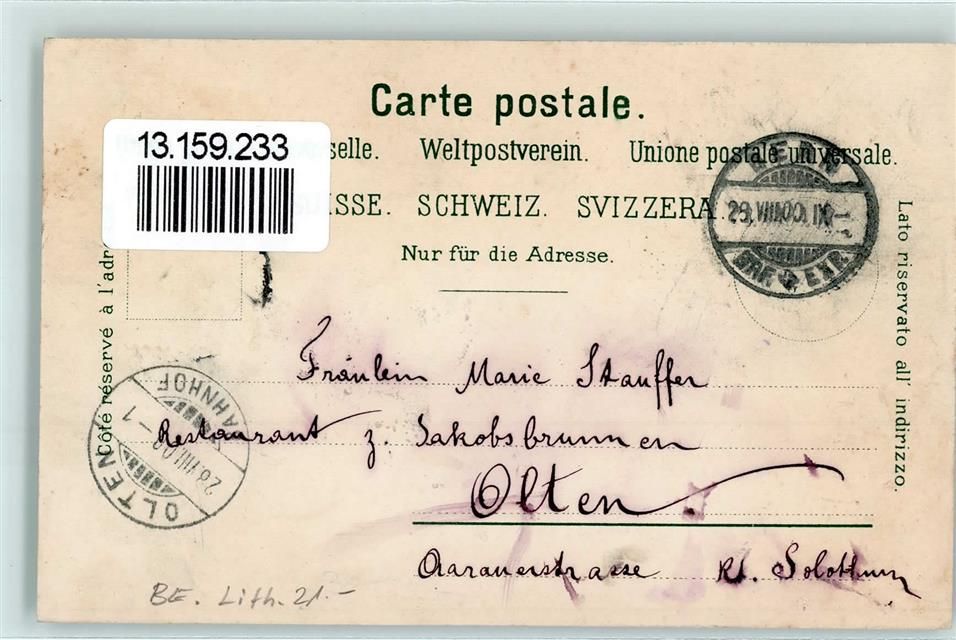 Carte postale.
13.159.233
selle. Weltpostverein. Unione postale universale.
SUISSE. SCHWEIZ. SVIZZERA.
Nur für die Adresse.
Côté réservé à l'adre
Lato riservato all' indirizzo.
BERN
BRF EXP.
OLTEN
BAHNHOF
Fräulein Marie Stauffer
Restaurant z. Jakobsbrunnen
Olten
Aarauerstrasse Kt. Solothurn
BE. Lith. 21.-